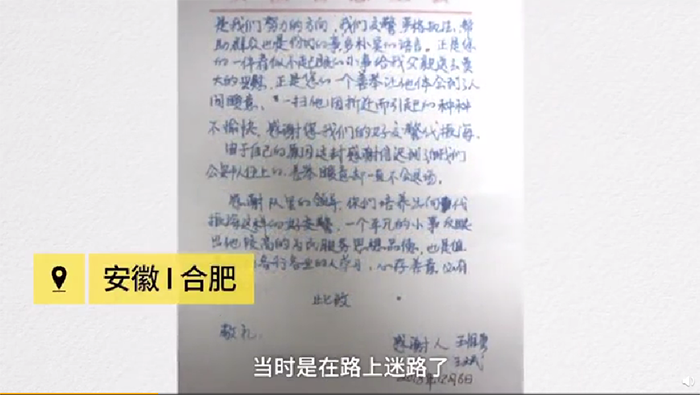 是我们努力的方向，我们交警严格执法、帮
助群众也是你们的最多朴实的语言。正是你
们一件看似不起眼的小事给我父亲送去莫
大的安慰，正是您们一个善举让他体会到了人
间暖意，一扫他因拆迁而引起的种种
不愉快，感谢您我们的好交警代振海。
由于自己的原因这封感谢信迟到了但我们
公安队伍上的善举暖意却一直不会退场。
感谢队里的领导，你们培养出向代
振海这样的好交警，一个平凡的小事反映
出他 高的为民服务思想品德，也是值
各行各业的人学习，心存善意
此致
敬礼
感谢人
12月6日
安徽 | 合肥
当时是在路上迷路了